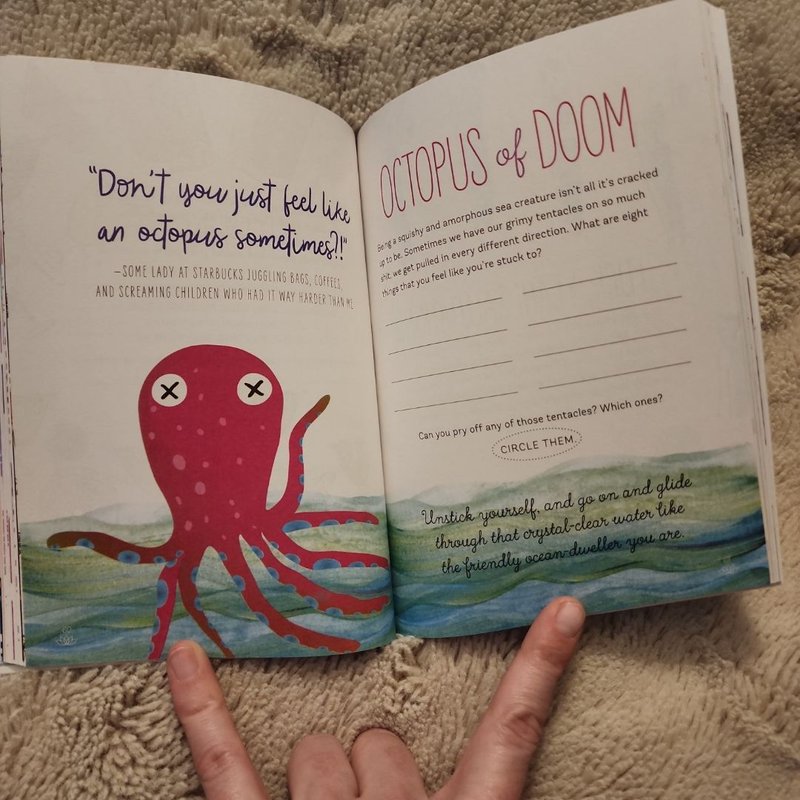 "Don't you just feel like
an octopus sometimes?!"
—SOME LADY AT STARBUCKS JUGGLING BAGS, COFFEES,
AND SCREAMING CHILDREN WHO HAD IT WAY HARDER THAN ME
OCTOPUS of DOOM
Being a squishy and amorphous sea creature isn't all it's cracked
up to be. Sometimes we have our grimy tentacles on so much
shit, we get pulled in every different direction. What are eight
things that you feel like you're stuck to?
Can you pry off any of those tentacles? Which ones?
CIRCLE THEM.
Unstick yourself, and go on and glide
through that crystal-clear water like
the friendly ocean-dweller you are.